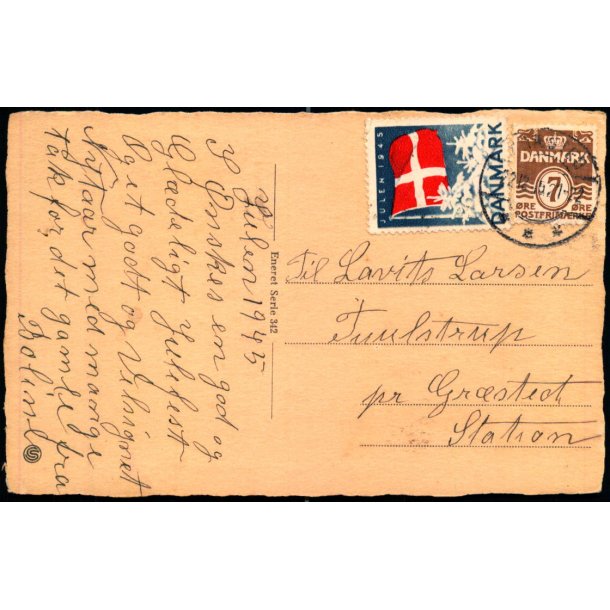 Julen 1945
I Ønskes en god og
Glædeligt Julefest
Og et godt og Velsignet
Nytaar med mange
tak for det gamle fra
Boline
Eneret Serie 342
JULEN 1945
DANMARK
DANMARK
7
ØRE ØRE
POSTFRIMÆRKE
Til Lavits Larsen
Fuulstrup
pr Græsted
Station